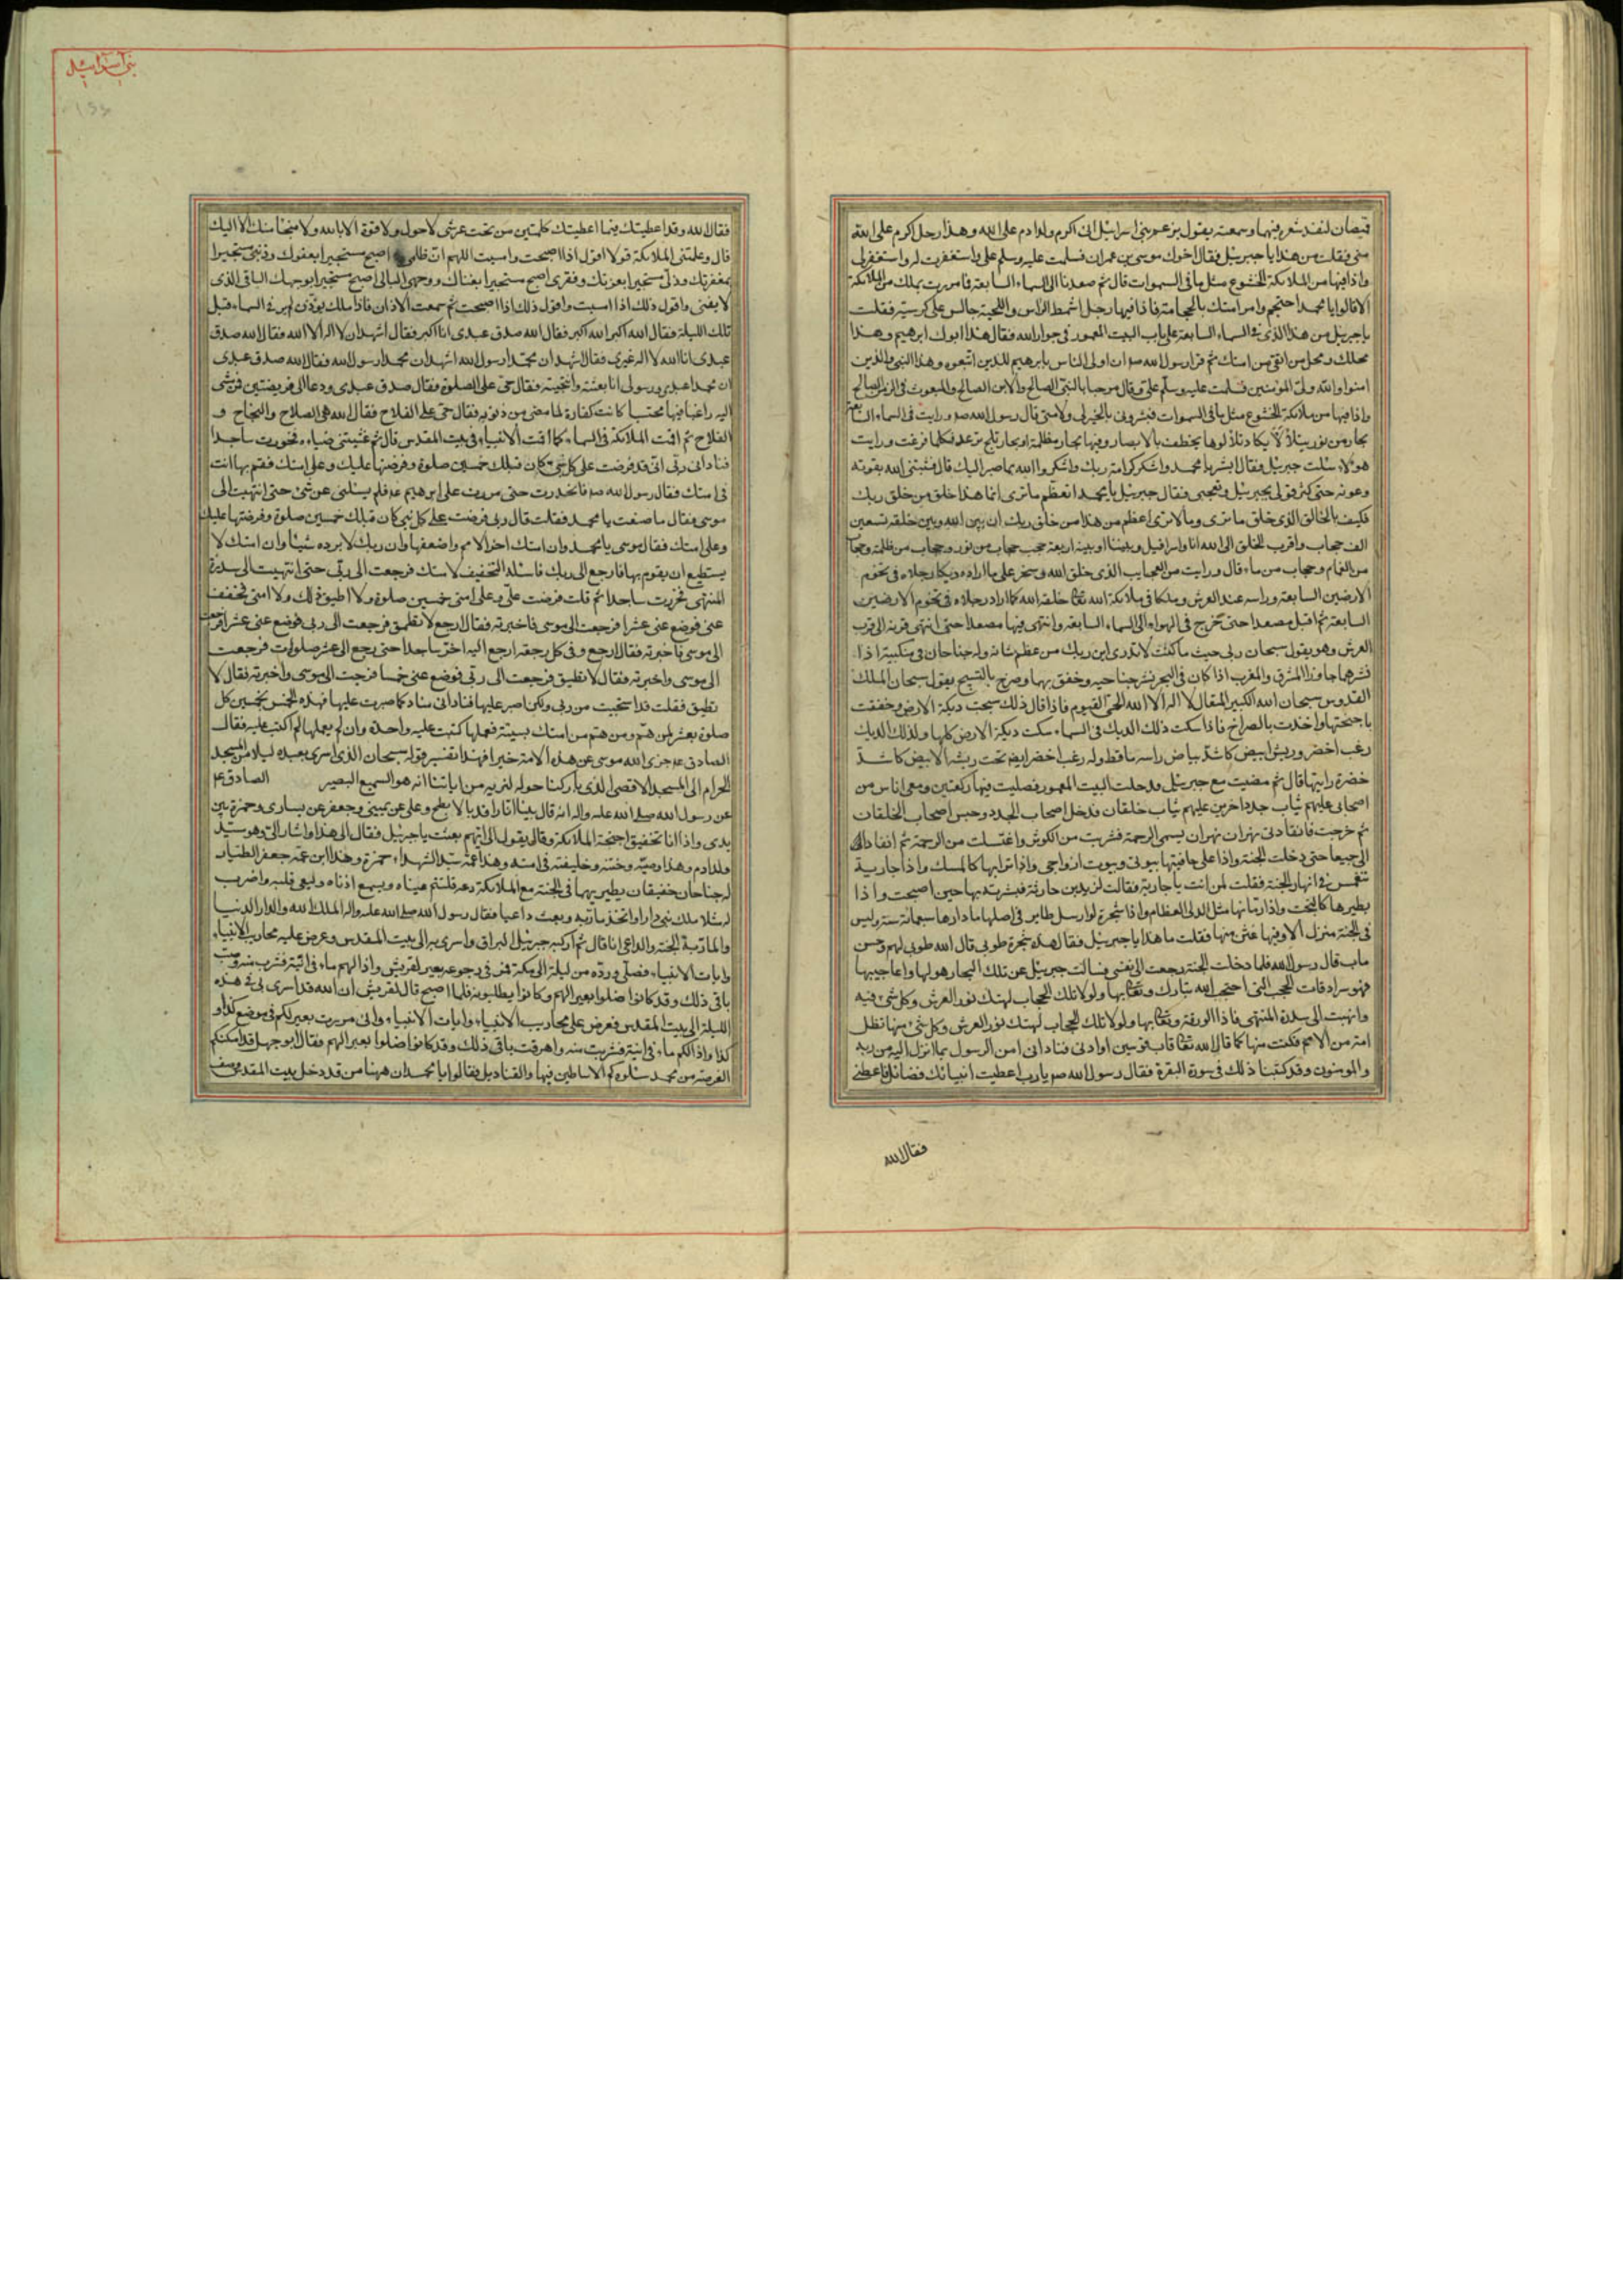 قميصان لنفذ شعره فيهما وسمعته يقول يزعم بنى اسرائيل انى اكرم ولد ادم على الله وهذا رجل اكرم على الله
منى فقلت من هذا يا جبرئيل فقال اخوك موسى بن عمران فسلمت عليه وسلم على واستغفرت له واستغفر لى
واذا فيها من الملائكة الخشوع مثل ما فى السموات قال ثم صعدنا الى السماء السابعة فما مررت بملك من الملائكة
الا قالوا يا محمد احتجم وامر امتك بالحجامة فاذا فيها رجل اشمط الراس واللحية جالس على كرسيه فقلت
يا جبرئيل من هذا الذى فى السماء السابعة على باب البيت المعمور فى جوار الله فقال هذا ابوك ابرهيم وهذا
محلك ومحل من اتقى من امتك ثم قرا رسول الله ص ان اولى الناس بابرهيم للذين اتبعوه وهذا النبى والذين
امنوا والله ولى المؤمنين فسلمت عليه وسلم على وقال مرحبا بالنبى الصالح والابن الصالح والمبعوث فى الزمن الصالح
واذا فيها من ملائكة الخشوع مثل ما فى السموات فبشرونى بالخير لى ولامتى قال رسول الله ص ورايت فى السماء السابعة
بحار من نور يتلألأ يكاد تلألؤها يخطف بالابصار وفيها بحار مظلمة وبحار ثلج ترعد فكلما فزعت ورايت
هولا سئلت جبرئيل فقال ابشر يا محمد واشكر كرامة ربك واشكروا الله بما صبر اليك قال فثبتنى الله بقوته
وعونه حتى كثر قولى لجبرئيل وتعجبى فقال جبرئيل يا محمد اتعظم ما ترى انما هذا خلق من خلق ربك
فكيف بالخالق الذى خلق ما ترى وما لا ترى اعظم من هذا من خلق ربك ان بين الله وبين خلقه تسعين
الف حجاب واقرب الخلق الى الله انا واسرافيل وبيننا وبينه اربعة حجب حجاب من نور وحجاب من ظلمة وحجاب
من الغمام وحجاب من ماء قال ورايت من العجايب الذى خلق الله وسخر على ما اراده ديكا رجلاه فى تخوم
الارضين السابعة وراسه عند العرش وملكا من ملائكة الله تعالى خلقه الله كما اراد رجلاه فى تخوم الارضين
السابعة ثم اقبل مصعدا حتى خرج فى الهواء الى السماء السابعة وانتهى فيها مصعدا حتى انتهى قرنه الى قرب
العرش وهو يقول سبحان ربى حيث ما كنت لا تدرى اين ربك من عظم شانه وله جناحان فى منكبيه اذا
نشرهما جاوزا المشرق والمغرب اذا كان فى السحر نشر جناحيه وخفق بهما وصرخ بالتسبيح يقول سبحان الملك
القدوس سبحان الله الكبير المتعال لا اله الا الله الحى القيوم فاذا قال ذلك سبحت ديكة الارض وخفقت
باجنحتها واخذت بالصراخ فاذا سكت ذلك الديك فى السماء سكت ديكة الارض كلها ولذلك الديك
زغب اخضر وريش ابيض كاشد بياض راسه ما قط وله زغب اخضر ايضا تحت ريشه الابيض كاشد
خضرة رايتها قال ثم مضيت مع جبرئيل فدخلت البيت المعمور فصليت فيها ركعتين ومعى اناس من
اصحابى عليهم ثياب جدد واخرين عليهم ثياب خلقان فدخل اصحاب الجدد وحبس اصحاب الخلقان
ثم خرجت فانقاد لى نهران نهر ان يسمى الرحمة فشربت من الكوثر واغتسلت من الرحمة ثم انقادا لى
الى جميعا حتى دخلت الجنة واذا على حافتيها بيوتى وبيوت ازواجى واذا ترابها كالمسك واذا جارية
تنغمس فى انهار الجنة فقلت لمن انت يا جارية فقالت لزيد بن حارثة فبشرته بها حين اصبحت واذا
بطيرها كالبخت واذا رمانها مثل الدلى العظام واذا شجرة لو ارسل طاير فى اصلها ما دارها سبعمائة سنة وليس
فى الجنة منزل الا وفيها غصن منها فقلت ما هذا يا جبرئيل فقال هذه شجرة طوبى قال الله طوبى لهم وحسن
ماب قال رسول الله فلما دخلت الجنة رجعت الى نفسى فسالت جبرئيل عن تلك البحار وهولها واعاجيبها
فهو سرادقات الحجب التى احتجب الله تبارك وتعالى بها ولولا تلك الحجاب لهتك نور العرش وكل شئ فيه
وانتهيت الى سدرة المنتهى فاذا الورقة وتعالى بها ولولا تلك الحجاب لهتك نور العرش وكل شئ منها تظل
امة من الامم فكنت منها كما قال الله تعالى قاب قوسين او ادنى فنادانى امن الرسول بما انزل اليه من ربه
والمومنون وقد كتبنا ذلك فى سورة البقرة فقال رسول الله ص يا رب اعطيت انبيائك فضائل فاعطنى
فقال الله
بنى اسرائيل
فقال الله وقد اعطيتك فيما اعطيتك كلمتين من تحت عرشى لا حول ولا قوة الا بالله ولا منجا منك الا اليك
قال وعلمتنى الملائكة قولا اقول اذا اصبحت وامسيت اللهم ان ظلمى اصبح مستجيرا بعفوك وذنبى مستجيرا
بمغفرتك وذلى مستجيرا بعزتك وفقرى اصبح مستجيرا بغناك ووجهى البالى اصبح مستجيرا بوجهك الباقى الذى
لا يفنى واقول ذلك اذا امسيت واقول ذلك اذا اصبحت ثم سمعت الاذان فاذا ملك يؤذن لم ير فى السماء قبل
تلك الليلة فقال الله اكبر الله اكبر فقال الله صدق عبدى انا اكبر فقال اشهد ان لا اله الا الله فقال الله صدق
عبدى انا الله لا اله غيرى فقال اشهد ان محمدا رسول الله اشهد ان محمدا رسول الله فقال الله صدق عبدى
ان محمدا عبدى ورسولى انا بعثته وانتجبته فقال حى على الصلوة فقال صدق عبدى ودعا الى فريضتى فمن مشى
اليه راغبا فيها محتسبا كانت كفارة لما مضى من ذنوبه فقال حى على الفلاح فقال الله هى الصلاح والنجاح و
الفلاح ثم اممت الملائكة فى السماء كما اممت الانبياء فى بيت المقدس قال ثم غشيتنى ضبابة فخررت ساجدا
فنادانى ربى انى قد فرضت على كل نبى كان قبلك خمسين صلوة وفرضتها عليك وعلى امتك فقم بها انت
فى امتك فقال رسول الله ص فانحدرت حتى مررت على ابرهيم ع فلم يسئلنى عن شئ حتى انتهيت الى
موسى فقال ما صنعت يا محمد فقلت قال ربى فرضت على كل نبى كان قبلك خمسين صلوة وفرضتها عليك
وعلى امتك فقال موسى يا محمد وان امتك اخر الامم واضعفها وان ربك لا يرده شيئا وان امتك لا
يستطيع ان يقوم بها فارجع الى ربك فاسئله التخفيف لامتك فرجعت الى ربى حتى انتهيت الى سدرة
المنتهى فخررت ساجدا ثم قلت فرضت على وعلى امتى خمسين صلوة ولا اطيق ذلك ولا امتى فخفف
عنى فوضع عنى عشرا فرجعت الى موسى فاخبرته فقال ارجع لا تطيق فرجعت الى ربى فوضع عنى عشرا فرجعت
الى موسى فاخبرته فقال ارجع وفى كل رجعة ارجع اليه اخر ساجدا حتى رجع الى عشر صلوات فرجعت
الى موسى واخبرته فقال لا تطيق فرجعت الى ربى فوضع عنى خمسا فرجعت الى موسى واخبرته فقال لا
تطيق فقلت قد استحييت من ربى ولكن اصبر عليها فنادانى مناد كما صبرت عليها فهذه الخمس بخمسين كل
صلوة بعشر من هم ومن هم من امتك بسيئة فعملها كتبت عليه واحدة وان لم يعملها لم اكتب عليه فقال
الصادق ع جزى الله موسى عن هذه الامة خيرا فهذا تفسير قوله سبحان الذى اسرى بعبده ليلا من المسجد
الحرام الى المسجد الاقصى الذى باركنا حوله لنريه من اياتنا انه هو السميع البصير الصادق ع
عن رسول الله صلى الله عليه واله انه قال بينا انا راقد بالابطح وعلى عن يمينى وجعفر عن يسارى وحمزة بين
يدى واذا انا بخفيق اجنحة الملائكة وقائل يقول الى ايهم بعثت يا جبرئيل فقال الى هذا واشار الى وهو سيد
ولد ادم وهذا وصيه وختنه وخليفته فى امته وهذا عمه سيد الشهداء حمزة وهذا ابن عمه جعفر الطيار
له جناحان خضيبان يطير بهما فى الجنة مع الملائكة دعه فلتنم عيناه ويسمع اذناه وليعى قلبه واضرب
له مثلا ملك بنى دارا واتخذ مأدبة وبعث داعيا فقال رسول الله صلى الله عليه واله الملك الله والدار الدنيا
والمأدبة الجنة والداعى انا قال ثم اركبه جبرئيل البراق واسرى به الى بيت المقدس وعرض عليه محاريب الانبياء
وايات الانبياء فصلى ورده من ليلته الى مكة فمر فى رجوعه بعير لقريش واذا لهم ماء فى انية فشرب منه وصب
باقى ذلك وقد كانوا اضلوا بعيرا لهم وكانوا يطلبونه فلما اصبح قال لقريش ان الله قد اسرى بى فى هذه
الليلة الى بيت المقدس فعرض على محاريب الانبياء وايات الانبياء وانى مررت بعير لكم فى موضع كذا و
كذا واذا لكم ماء فى انية فشربت منه واهرقت باقى ذلك وقد كانوا اضلوا بعيرا لهم فقال ابو جهل قد امكنكم
الفرصة من محمد سئلوه كم الاساطين فيها والقناديل فقالوا يا محمد ان ههنا من قد دخل بيت المقدس فصف